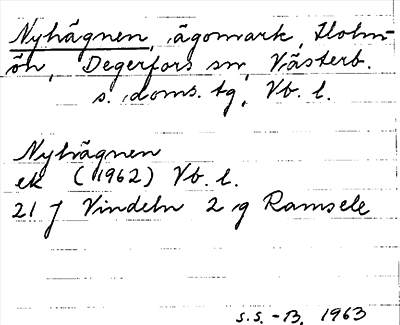 Nyhägnen, ägomark, Holm-
ön, Degerfors sn, Västerb.
s. doms. tg, Vb. l.
Nyhägnen
ek (1962) Vb. l.
21 J Vindeln 2 g Ramsele
S.S. -B. 1963